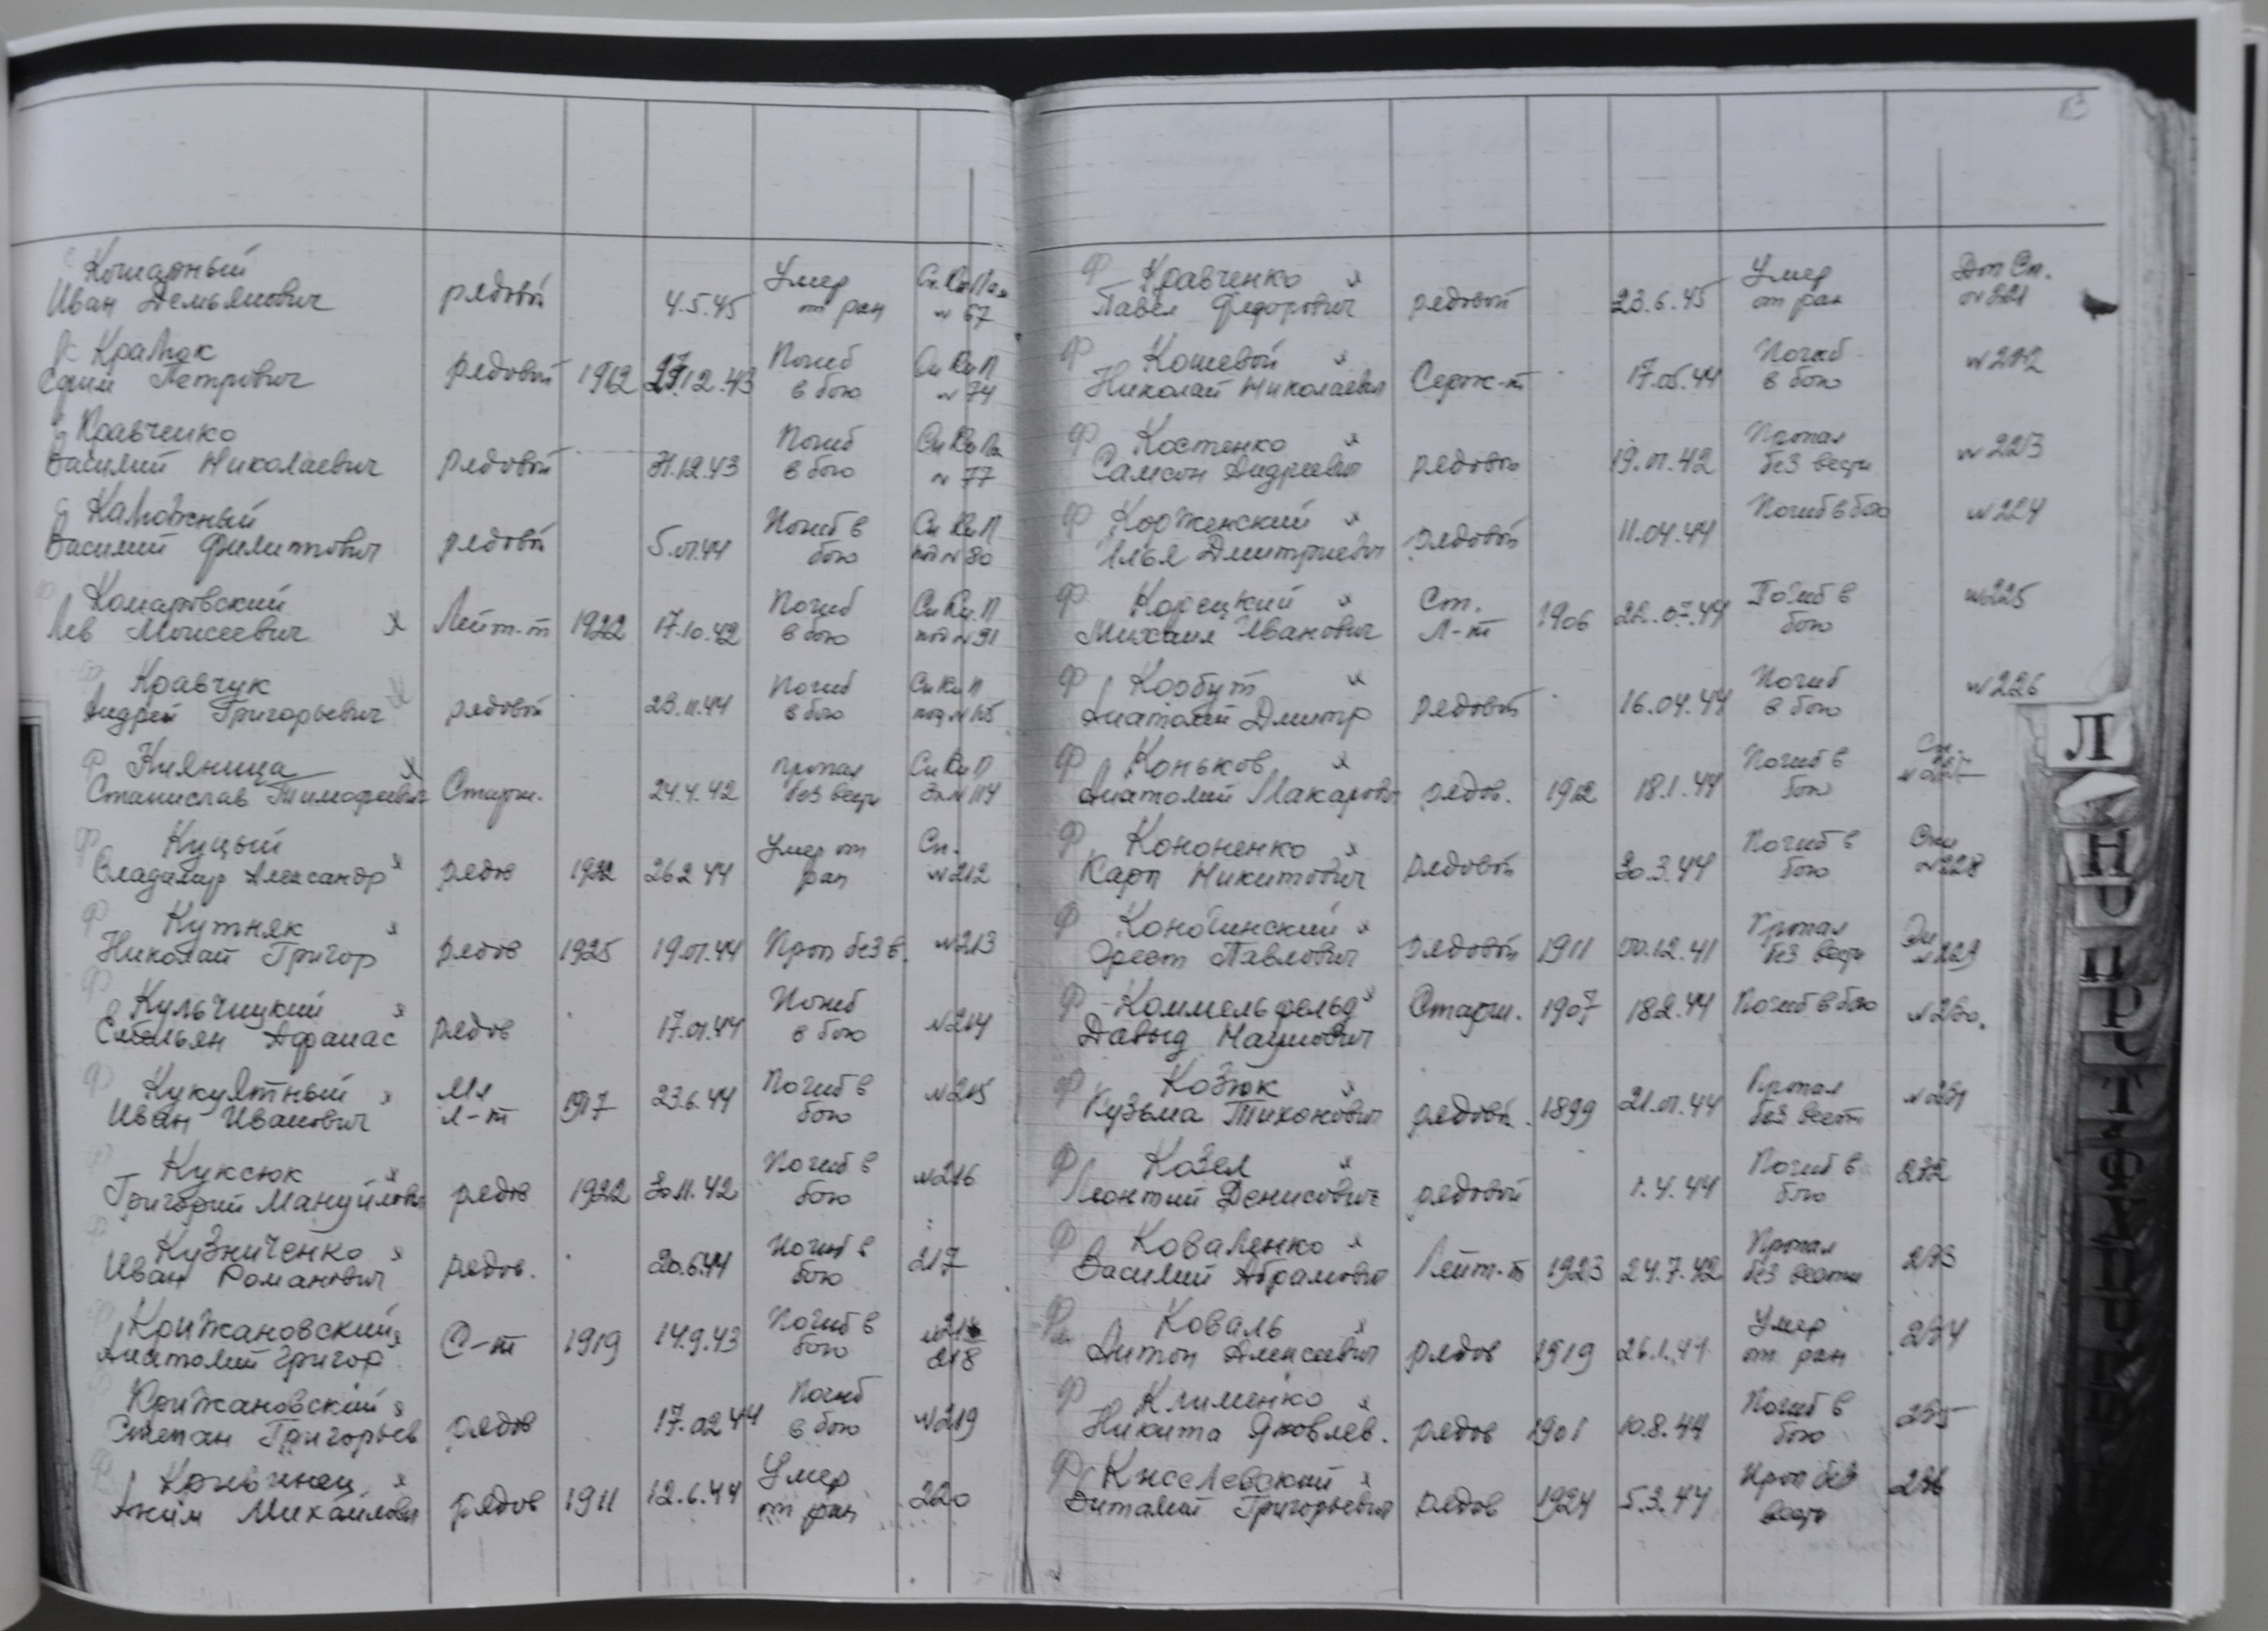 Комарный
Иван Демьянович рядовой 4.5.45 Умер от ран № 67
Крапок
Ефим Петрович рядовой 1912 27.12.43 Погиб в бою № 74
Кравченко
Василий Николаевич рядовой 31.12.43 Погиб в бою № 77
Калюжный
Василий Филиппович рядовой 5.01.44 Погиб в бою под № 80
Комаровский
Лев Моисеевич х Лейт-т 1922 17.10.42 Погиб в бою под № 91
Кравчук
Андрей Григорьевич х рядовой 23.11.44 Погиб в бою под № 105
Ф Кияница х
Станислав Тимофеевич Старш. 24.4.42 пропал без вести № 114
Ф Куцый
Владимир Александр х рядов 1922 26.2.44 Умер от ран Сп. № 212
Ф Кутняк х
Николай Григор рядов 1925 19.01.44 Проп без в. № 213
Ф Кульчицкий х
Емельян Афанас рядов 17.01.44 Погиб в бою № 214
Ф Кукулятный х
Иван Иванович Мл Л-т 1917 23.6.44 Погиб в бою № 215
Ф Куксюк х
Григорий Мануйлович рядов 1922 30.11.42 Погиб в бою № 216
Кузниченко х
Иван Романович рядов. 20.6.44 Погиб в бою 217
Крижановский х
Анатолий Григор С-т 1919 14.9.43 Погиб в бою 218
Крижановский х
Степан Григорьев рядов 17.02.44 Погиб в бою № 219
Ф Кривинец х
Аким Михайлович рядов 1911 12.6.44 Умер от ран 220
Ф Кравченко х
Павел Федорович рядовой 23.6.45 Умер от ран Доп Сп. № 221
Ф Кошевой х
Николай Николаевич Серж-т 17.05.44 Погиб в бою № 222
Ф Костенко х
Самсон Андреевич рядовой 19.01.42 Пропал без вести № 223
Ф Корженский х
Илья Дмитриевич рядовой 11.04.44 Погиб в бою № 224
Ф Корецкий х
Михаил Иванович Ст. Л-т 1906 22.07.44 Погиб в бою № 225
Ф Корбут х
Анатолий Дмитр рядовой 16.04.44 Погиб в бою № 226
Ф Коньков х
Анатолий Макарович рядов. 1912 18.1.44 Погиб в бою
Ф Кононенко х
Карп Никитович рядовой 30.3.44 Погиб в бою № 228
Ф Коновинский х
Орест Павлович рядовой 1911 00.12.41 Пропал без вести № 229
Ф Коммельфельд х
Давыд Наумович Старш. 1907 18.2.44 Погиб в бою № 230.
Ф Козюк х
Кузьма Тихонович рядовой. 1899 21.01.44 Пропал без вести № 231
Ф Козел х
Леонтий Денисович рядовой 1.4.44 Погиб в бою 232
Ф Коваленко х
Василий Абрамович Лейт-т 1923 24.7.42 Пропал без вести 233
Ф Коваль х
Антон Алексеевич рядов 1919 26.1.44 Умер от ран 234
Ф Клименко х
Никита Яковлев. рядов 1901 10.8.44 Погиб в бою 235
Ф Киселевский х
Виталий Григорьевич рядов 1924 5.3.44 Проп без вести 236
Л
Н
О
П
Р
С
Т